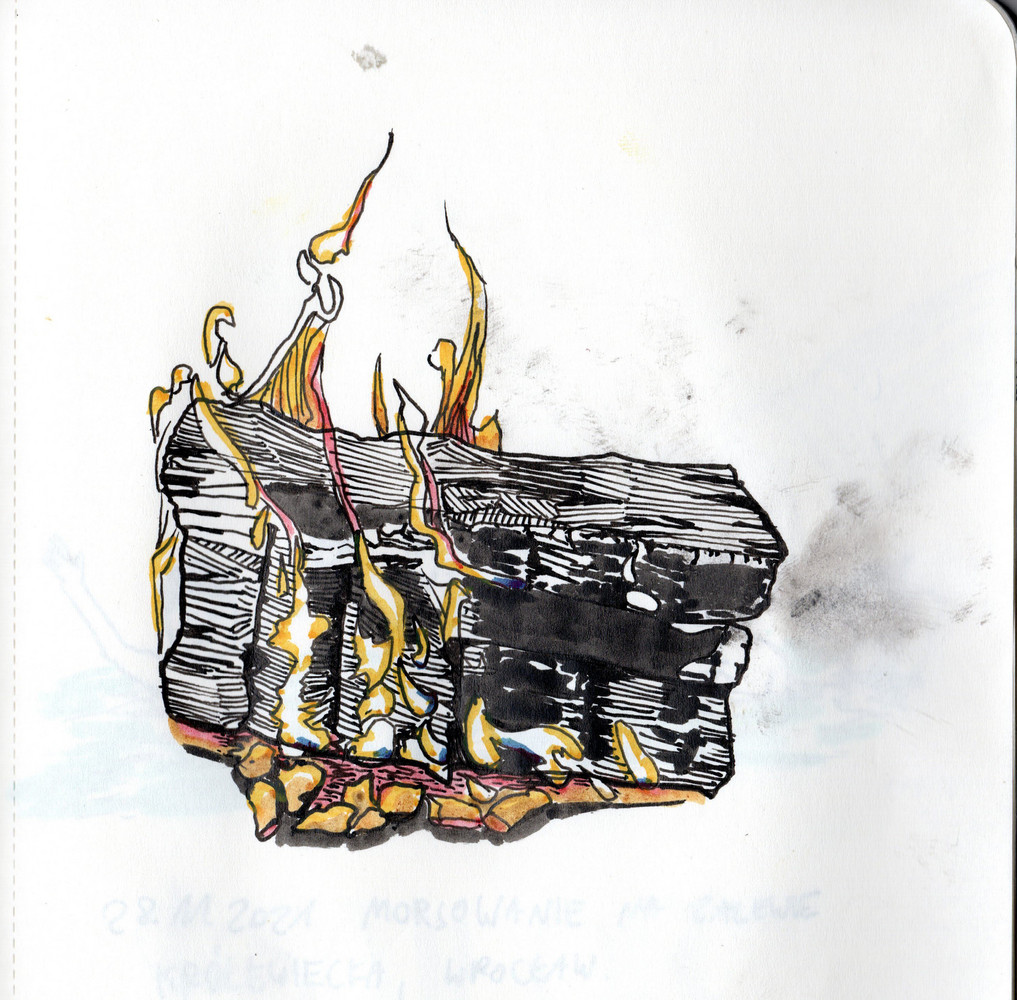 28.11.2021 MORSOWANIE NA ZALEWIE
KRÓLEWIECKA, WROCŁAW.